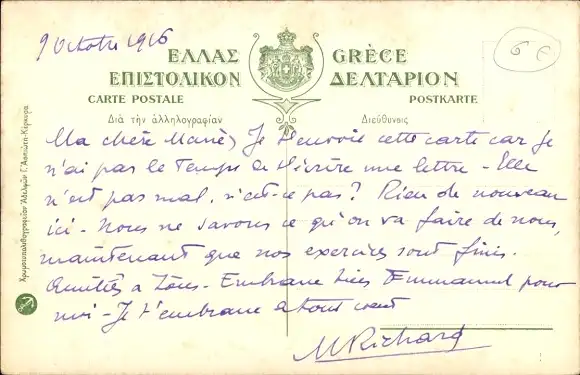 9 Octobre 1916
6 €
ΕΛΛΑΣ GRÈCE
ΕΠΙΣΤΟΛΙΚΟΝ ΔΕΛΤΑΡΙΟΝ
CARTE POSTALE POSTKARTE
Διὰ τὴν ἀλληλογραφίαν Διεύθυνσις
Ma chère Marie, Je t'envoie cette carte car je
n'ai pas le temps de t'écrire une lettre - Elle
n'est pas mal, n'est-ce pas? Rien de nouveau
ici - Nous ne savons ce qu'on va faire de nous,
maintenant que nos exercices sont finis.
Amitiés à tous - Embrasse Emmanuel pour
moi - Je t'embrasse à tout cœur
M Richard
Χρωμοτυπολιθογραφεῖον Ἀδελφῶν Γ. Ἀσπιώτη-Κέρκυρα